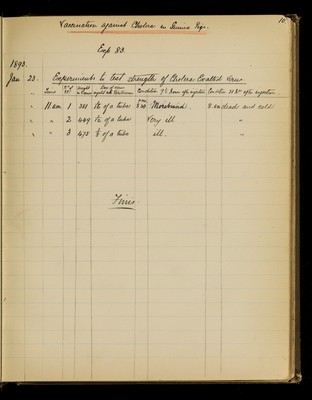 10
Vaccination against Cholera in Guinea Pigs.
Exp 83.
1893.
Jan 23. Experiments to test strength of Cholera Exalted virus
Time No of Weight Dose of virus Condition 7½ hours after injection Condition 21 hrs after injection
" 11 am 1 331 ⅙ of a tube Moribund. 8. am dead and cold
" " 2 449 of a tube Very ill "
" " 3 473 of a tube ill. "
Finis.